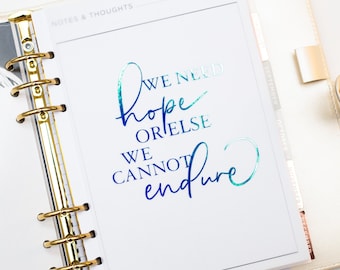 NOTES & THOUGHTS
WE NEED
hope
OR ELSE
WE
CANNOT
endure